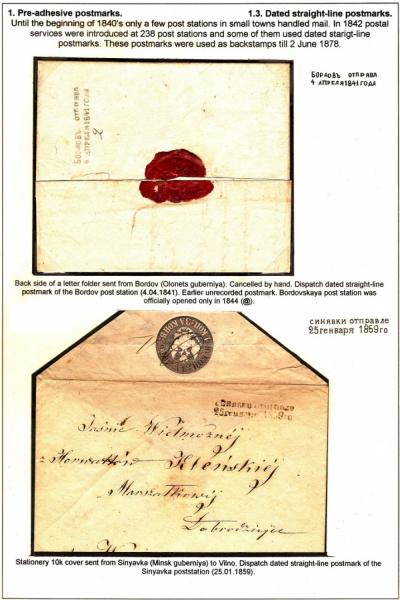 1. Pre-adhesive postmarks. 1.3. Dated straight-line postmarks.
Until the beginning of 1840's only a few post stations in small towns handled mail. In 1842 postal
services were introduced at 238 post stations and some of them used dated starigt-line
postmarks. These postmarks were used as backstamps till 2 June 1878.
БОРДОВЪ ОТПРАВА
4 АПРЕЛЯ 1841 ГОДА
БОРДОВЪ ОТПРАВА
4 АПРЕЛЯ 1841 ГОДА
Back side of a letter folder sent from Bordov (Olonets guberniya). Cancelled by hand. Dispatch dated straight-line
postmark of the Bordov post station (4.04.1841). Earlier unrecorded postmark. Bordovskaya post station was
officially opened only in 1844 (@).
СИНЯВКИ ОТПРАВЛЕ
25 генваря 1859го
СИНЯВКИ ОТПРАВЛЕ
25 генваря 1859го
Jaśnie Wielmożnéj
z Horwattów Kleńskiéj
Marszałkowéj
Stationery 10k cover sent from Sinyavka (Minsk guberniya) to Vilno. Dispatch dated straight-line postmark of the
Sinyavka poststation (25.01.1859).